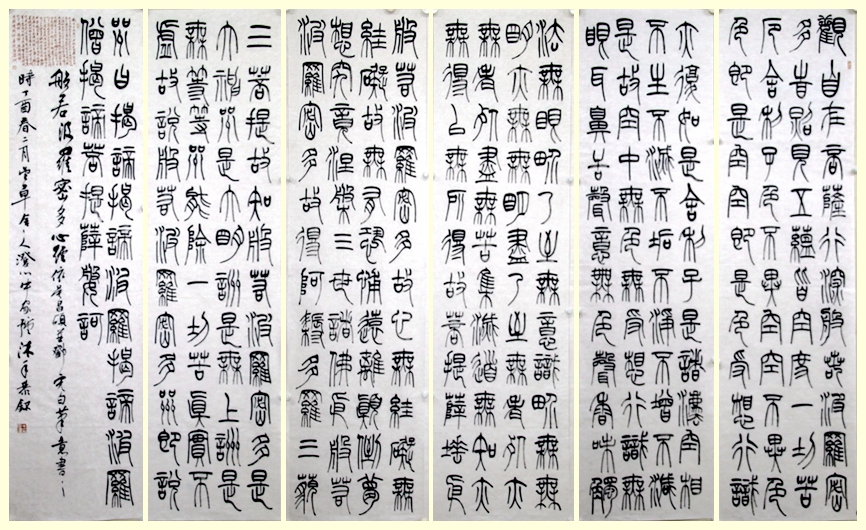 觀自在菩薩行深般若波羅密
多時照見五蘊皆空度一切苦
厄舍利子色不異空空不異色
色即是空空即是色受想行識
亦復如是舍利子是諸法空相
不生不滅不垢不淨不增不減
是故空中無色無受想行識無
眼耳鼻舌聲意無色聲香味觸
法無眼界乃至無意識界無無
明亦無無明盡乃至無老死亦
無老死盡無苦集滅道無知亦
無得以無所得故菩提薩埵依
般若波羅密多故心無罣礙無
罣礙故無有恐怖遠離顛倒夢
想究竟涅槃三世諸佛依般若
波羅密多故得阿耨多羅三藐
三菩提故知般若波羅密多是
大神咒是大明咒是無上咒是
無等等咒能除一切苦真實不
虛故說般若波羅密多咒即說
咒曰揭諦揭諦波羅揭諦波羅
僧揭諦菩提薩婆訶
般若波羅密多心經 筆意書之
時丁酉春二月